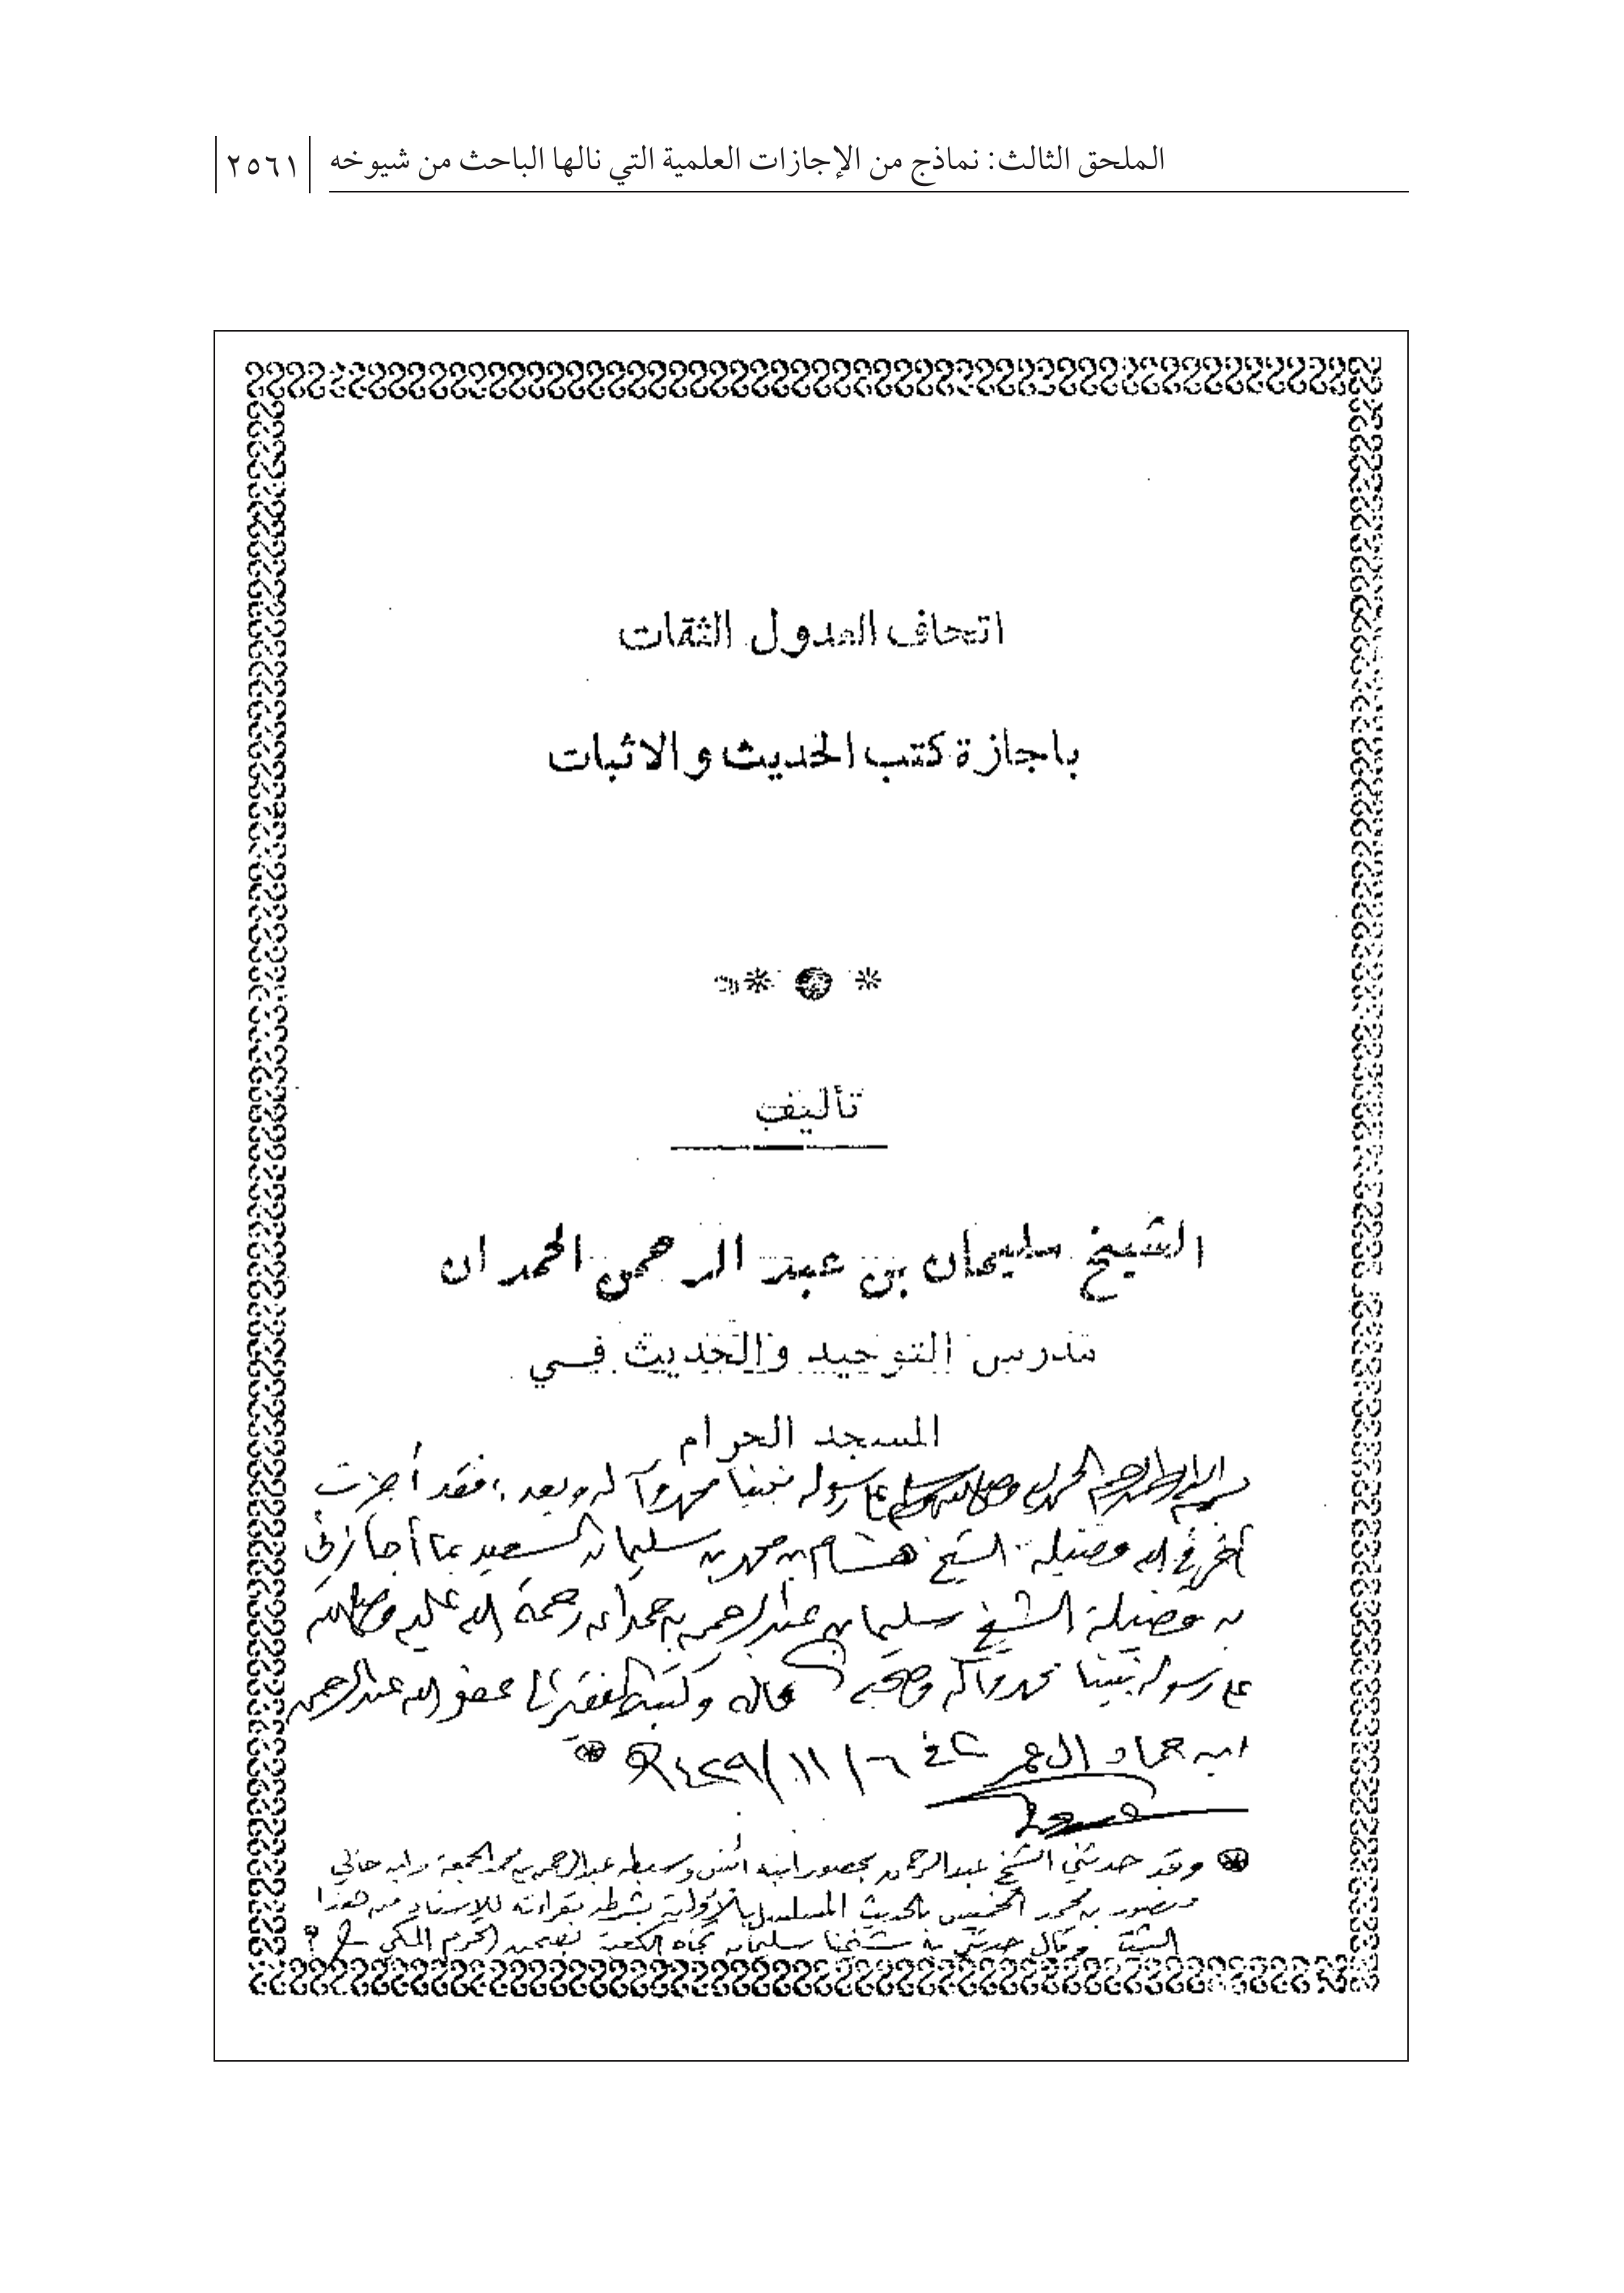 الملحق الثالث: نماذج من الإجازات العلمية التي نالها الباحث من شيوخه
٢٥٦١
اتحاف العدول الثقات
باجازة كتب الحديث والاثبات
تأليف
الشيخ سليمان بن عبد الرحمن الحمدان
مدرس التوحيد والحديث في
المسجد الحرام
بسم الله الرحمن الرحيم الحمد لله وصلى الله وسلم على رسوله نبينا محمد وآله وبعد: فقد أجزت
أخي في الله فضيلة الشيخ هشام بن محمد بن سليمان السعيد بما أجازني
به فضيلة الشيخ سليمان بن عبد الرحمن بن حمدان رحمة الله عليه وصلى الله
على رسوله نبينا محمد وآله وصحبه قاله وكتبه الفقير إلى عفو الله عبد الرحمن
ابن حماد العمر في ٦/١١/١٤٢٩هـ
وقد حدثني الشيخ عبد الرحمن بحضور ابنه أنس وسبطه عبد الرحمن بن محمد الجمعة وابن خالي
منصور بن محمد الخميس بالحديث المسلسل بالأولية بشرطه بقراءته للإسناد من هذا
الثبت وقال حدثني به شيخنا سليمان تجاه الكعبة الحرم المكي